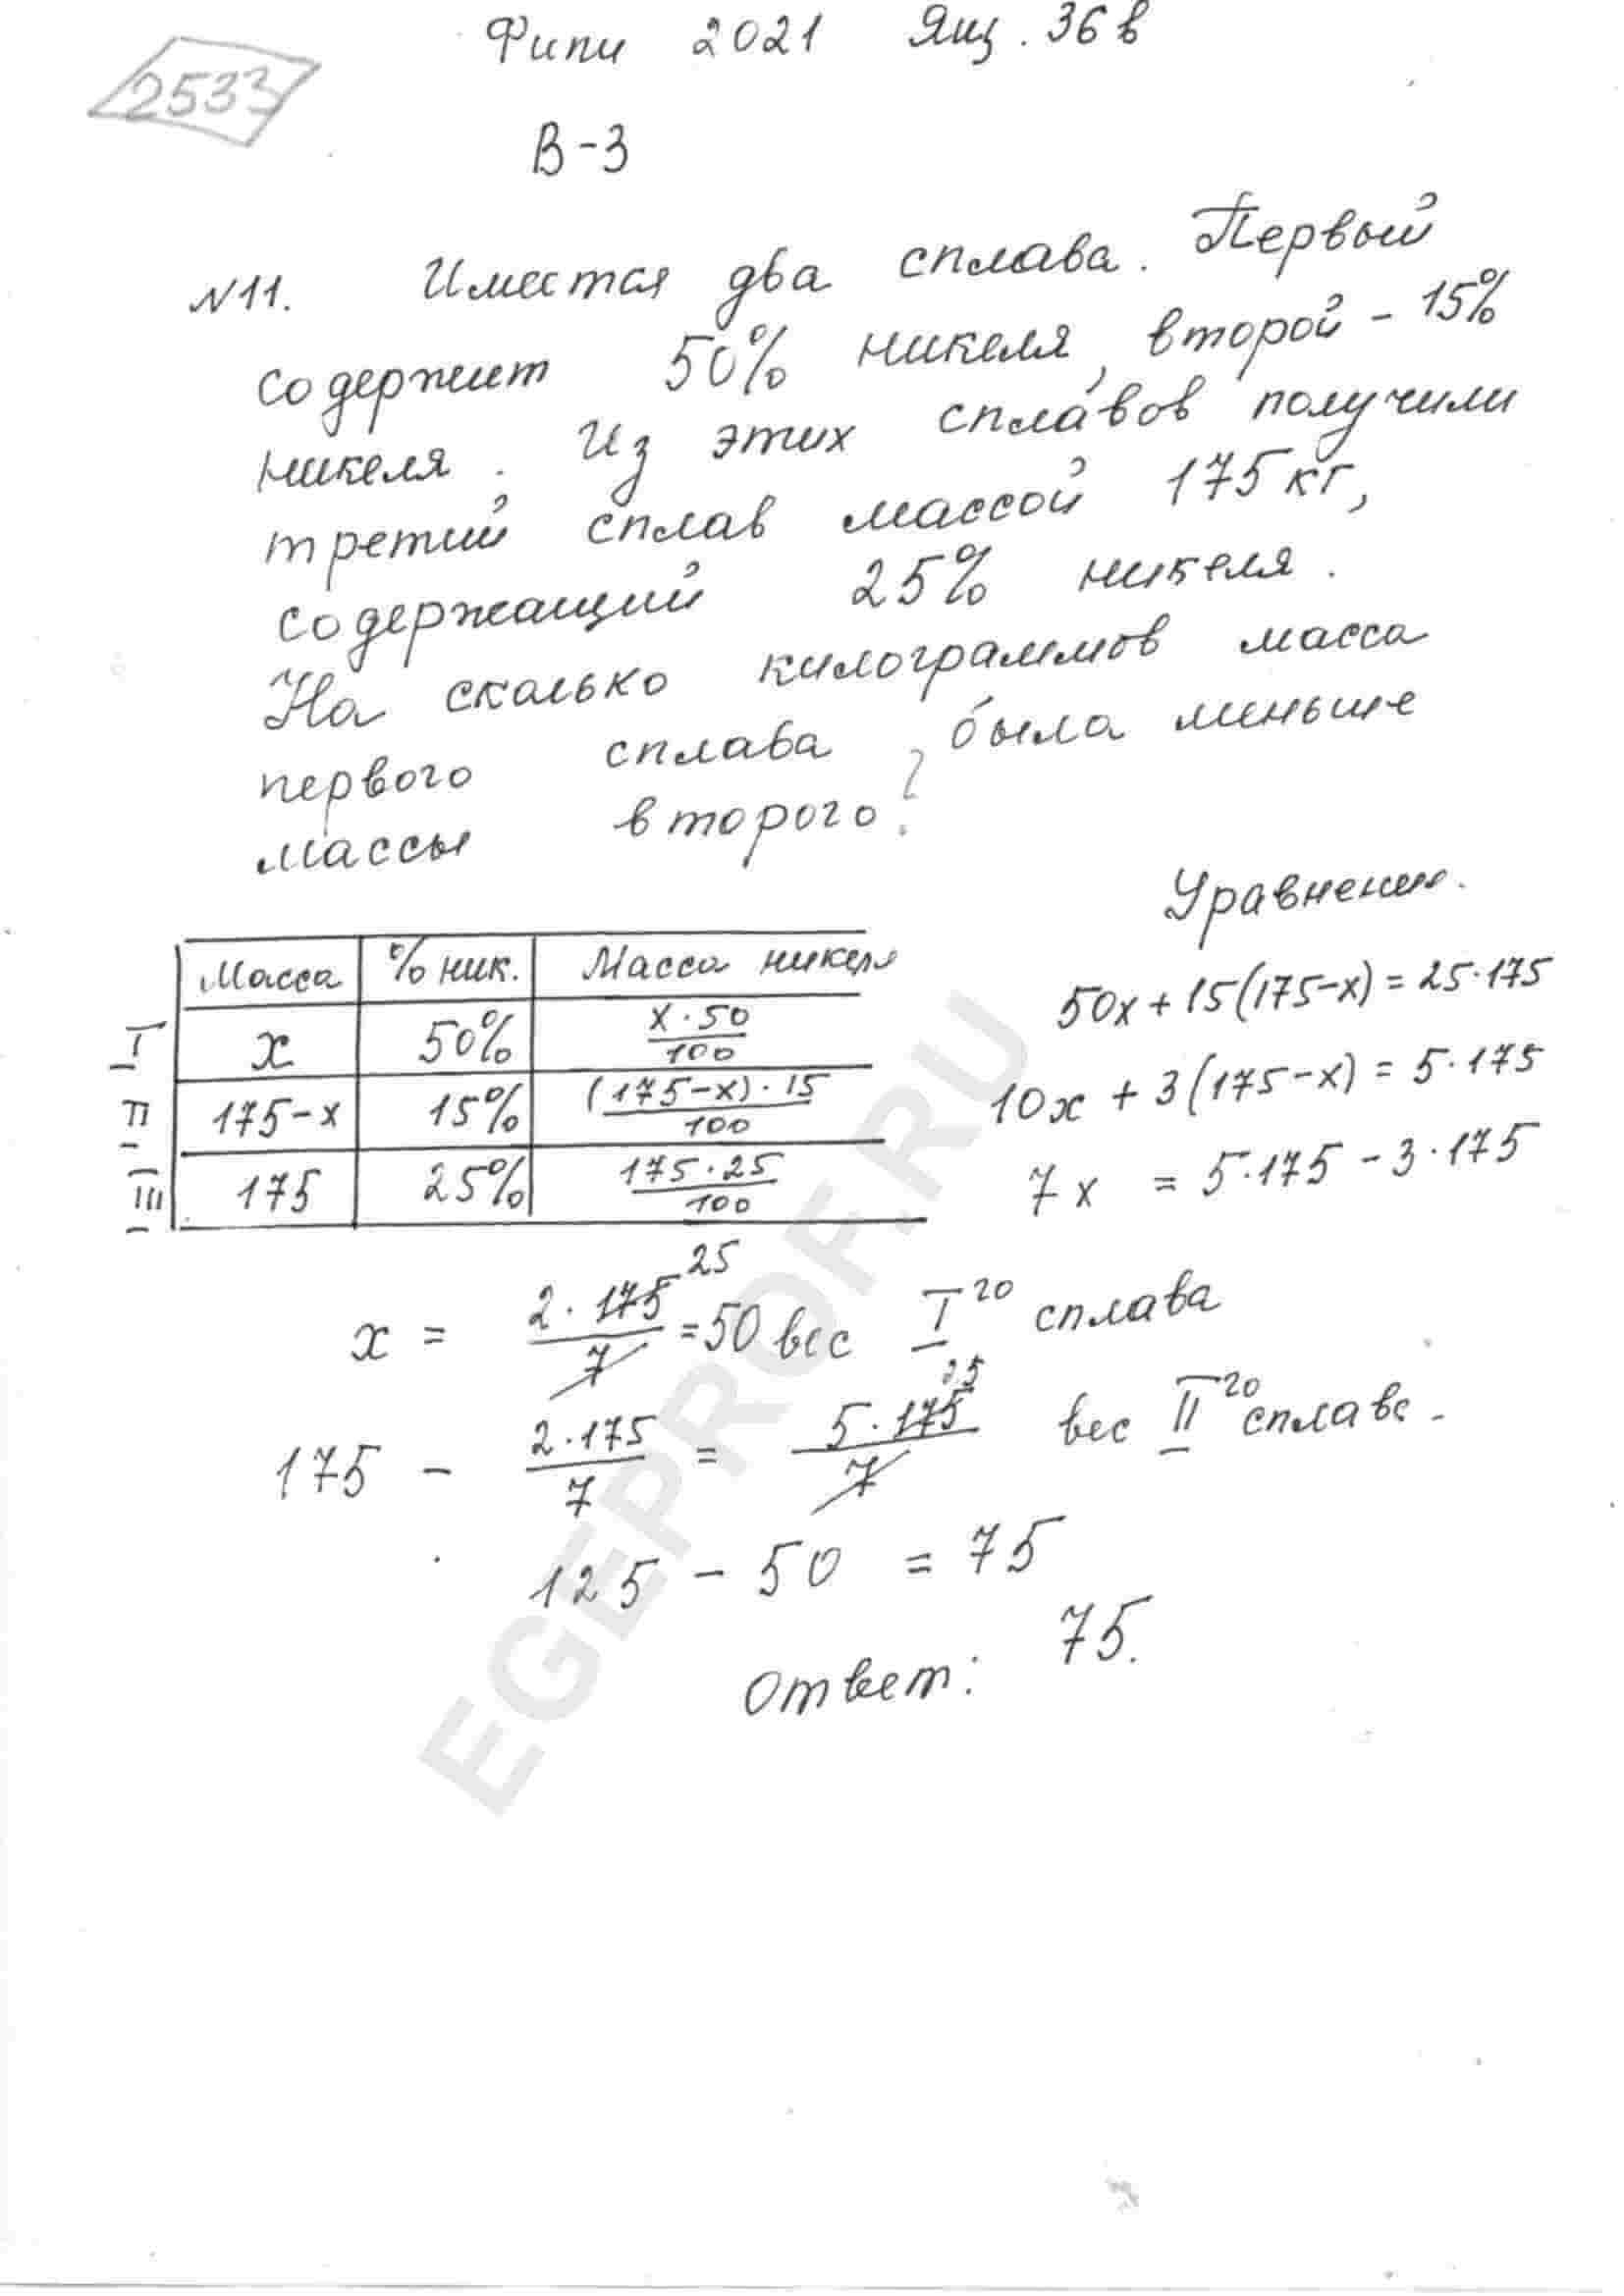 2533
Фипи 2021 Ящ. 36 в
В-3
№11. Имеется два сплава. Первый
содержит 50% никеля, второй - 15%
никеля. Из этих сплавов получили
третий сплав массой 175 кг,
содержащий 25% никеля.
На сколько килограммов масса
первого сплава была меньше
массы второго?
Уравнение.
Масса | % ник. | Масса никеля
I | x | 50% | x·50/100
II | 175-x | 15% | (175-x)·15/100
III | 175 | 25% | 175·25/100
50x + 15(175-x) = 25·175
10x + 3(175-x) = 5·175
7x = 5·175 - 3·175
x = 2·175/7 25 = 50 вес I го сплава
175 - 2·175/7 = 5·175/7 25 вес II го сплава.
125 - 50 = 75
Ответ: 75.
EGEPROF.RU